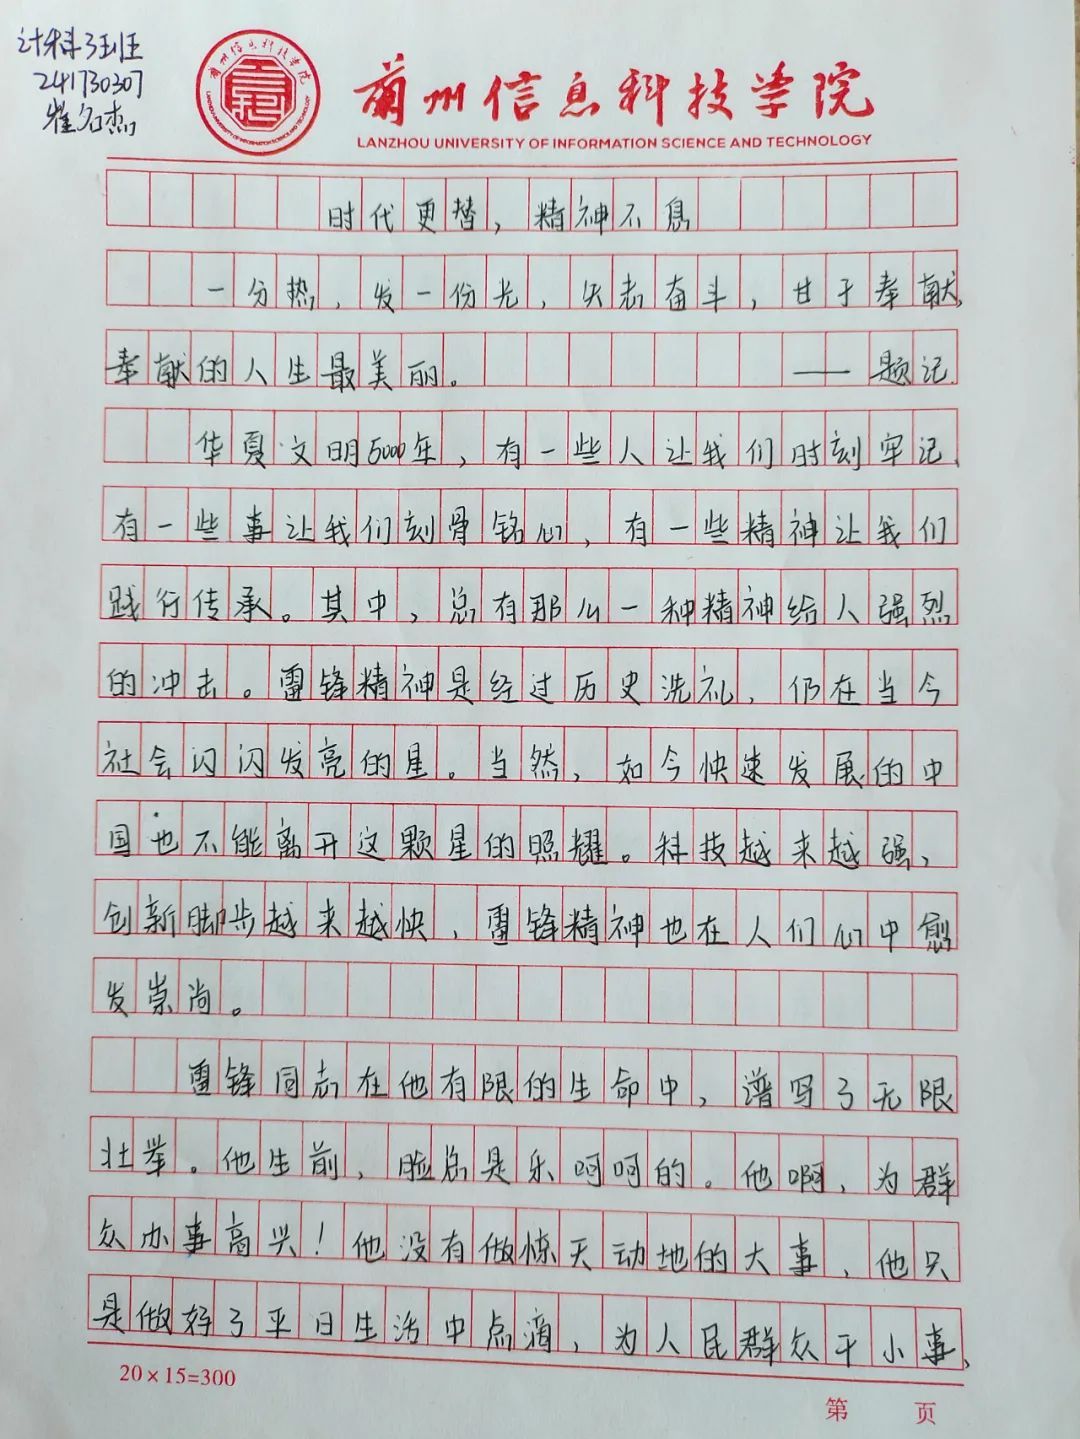 计科3班
241730307
崔名杰
兰州信息科技学院
LANZHOU UNIVERSITY OF INFORMATION SCIENCE AND TECHNOLOGY
时代更替，精神不息
一分热，发一份光，矢志奋斗，甘于奉献，
奉献的人生最美丽。——题记
华夏文明5000年，有一些人让我们时刻牢记、
有一些事让我们刻骨铭心，有一些精神让我们
践行传承。其中，总有那么一种精神给人强烈
的冲击。雷锋精神是经过历史洗礼，仍在当今
社会闪闪发亮的星。当然，如今快速发展的中
国也不能离开这颗星的照耀。科技越来越强，
创新脚步越来越快，雷锋精神也在人们心中愈
发崇尚。
雷锋同志在他有限的生命中，谱写了无限
壮举。他生前，脸总是乐呵呵的。他啊，为群
众办事高兴！他没有做惊天动地的大事，他只
是做好了平日生活中点滴，为人民群众干小事，
20×15=300
第 页